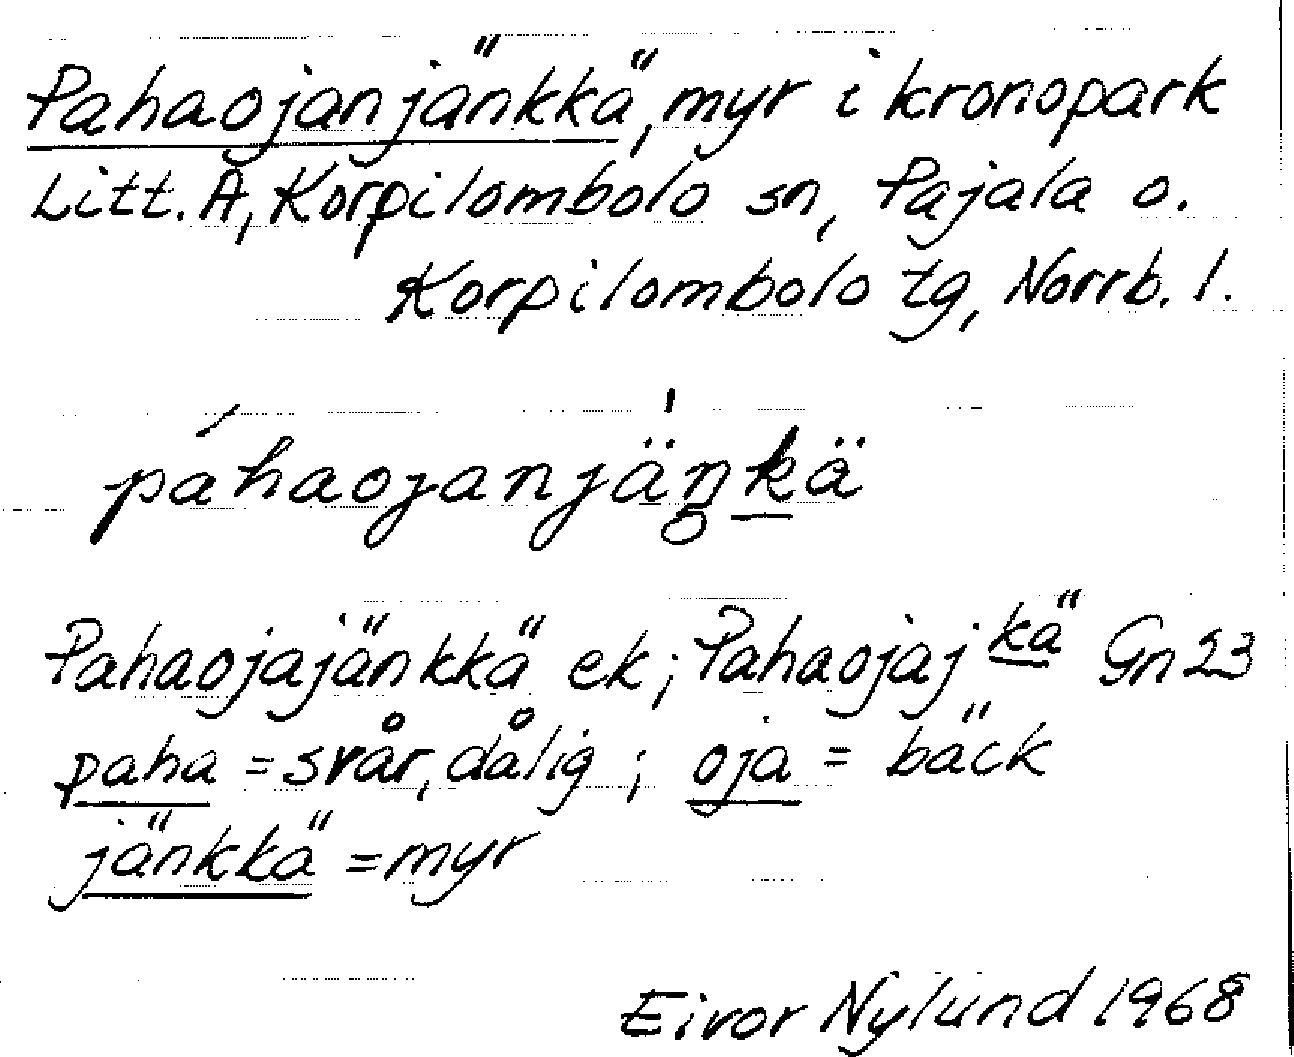 Pahaojanjänkkä, myr i kronopark
Litt. A, Korpilombolo sn, Pajala o.
Korpilombolo tg, Norrb. l.
páhaojanjäŋkä
Pahaojajänkkä ek; Pahaojaj kä Gn 23
paha = svår, dålig; oja = bäck
jänkkä = myr
Eivor Nylund 1968